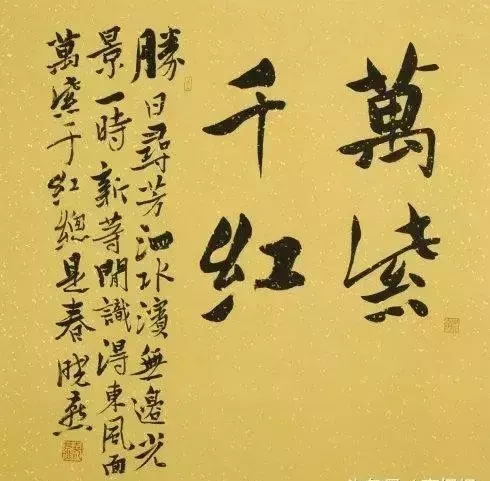 萬紫
千红
勝日尋芳泗水濱無邊光
景一時新等閒識得東風面
萬紫千红總是春